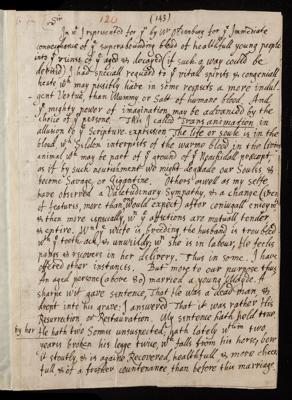 120 (143)
In yt I reprevented for ye by Wr of Embury for ye Immediate
conveyance of ye superabounding blood of healthfull young people
into ye ruines of ye aged & decayed (if such a way could be
devised) I had speciall regard to ye vitall spirits & congeniall
heate wch may possibly have in some respects a more indul-
gent Vertue than Mummy or Salt of humane blood. And
ye mighty power of imagination may be advanced by the
choice of persons. This I called Transanimation in
allusion to ye Scripture expression The life or soule is in the
blood, wch Selden interprets of the warme blood in the living
animal, wch may be part of ye ground of ye Noachidall precept,
as if by such nourishment we might degrade our Soules &
become Savage, or Gigantine. Others as well as my selfe
have observed a Vicissitudinary Sympathy, & a change (even
of features, more than Would expect) after conjugall enioymt
& then more especially, wn ye affections are mutuall tender
& entire. Wn ye wife is breeding the husband is troubled
wth ye tooth-ach, & unwieldy; wn she is in labour, He feeles
paines & recovers in her delivery. Thus in some. I have
offered other instances. But more to our purpose thus
An aged persone (above 80) married a young Maide. A
sharpe Wit gave sentence, That He was a dead man &
went into his grave. I answered That it was rather His
Resurrection or Restauration. My sentence hath held true.
by her He hath two Sonnes unsuspected; hath lately wthin two
yeares broken his legge twice, wth falls from his horse, bore
it stoutly, & is againe Recovered, healthfull & more cheer-
full & of a fresher countenance than before this marriage.